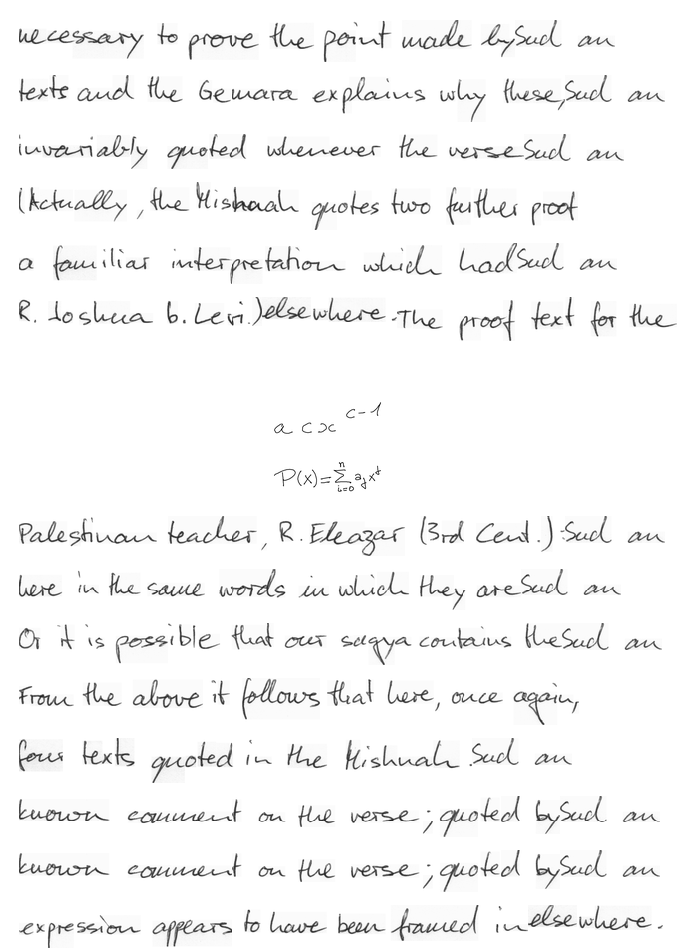 necessary to prove the point made by Sud an
texts and the Gemara explains why these, Sud an
invariably quoted whenever the verse Sud an
(Actually, the Mishnah quotes two further proof
a familiar interpretation which had Sud an
R. Joshua b. Levi.) elsewhere. The proof text for the
a c x^{c-1}
P(x) = \sum_{i=0}^{n} a_j x^j
Palestinan teacher, R. Eleazar (3rd Cent.) : Sud an
here in the same words in which they are Sud an
Or it is possible that our sugya contains the Sud an
From the above it follows that here, once again,
four texts quoted in the Mishnah. Sud an
known comment on the verse; quoted by Sud an
known comment on the verse; quoted by Sud an
expression appears to have been framed in elsewhere.